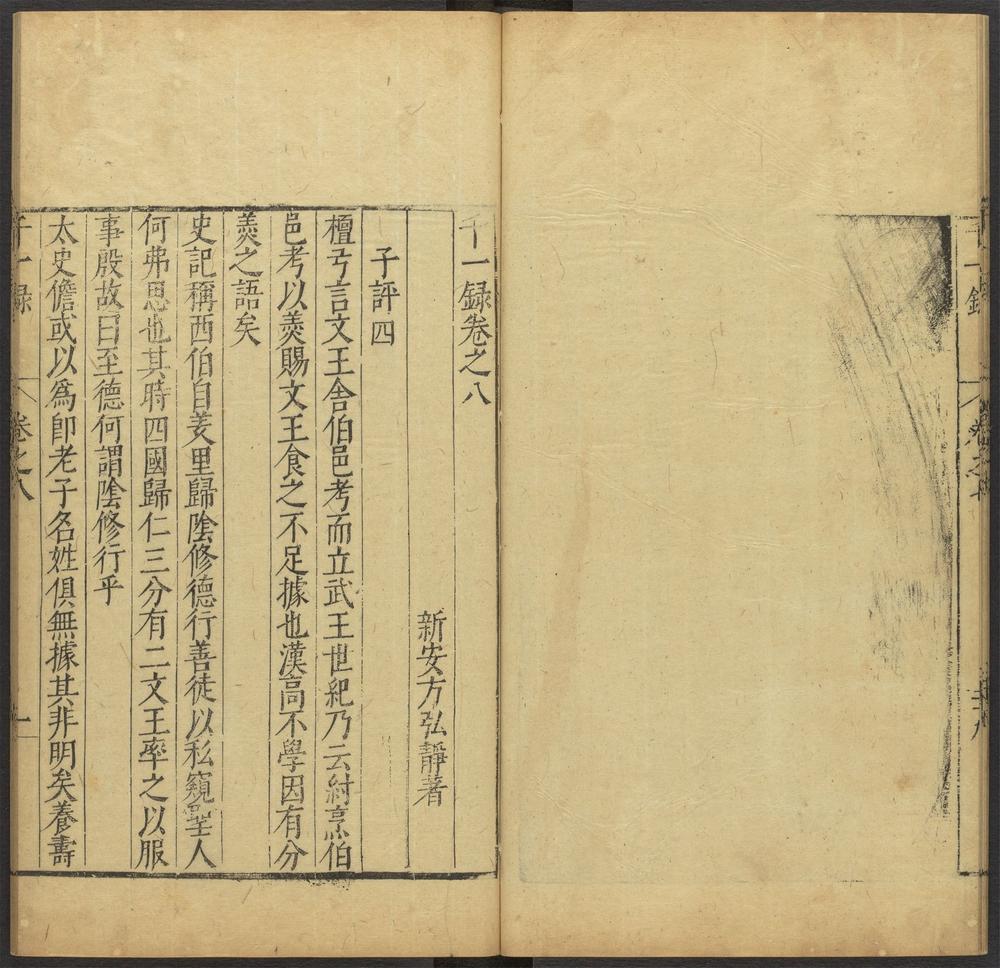 千一錄
卷之
千一録卷之八
新安方弘靜著
子評四
檀弓言文王舎伯邑考而立武王世紀乃云紂烹伯
邑考以羮賜文王食之不足據也漢高不學因有分
羮之語矣
史記稱西伯自羑里歸陰修德行善徒以私窺聖人
何弗思也其時四國歸仁三分有二文王率之以服
事殷故曰至德何謂陰修行乎
太史儋或以爲卽老子名姓俱無據其非明矣養壽
千一録
卷之八
一